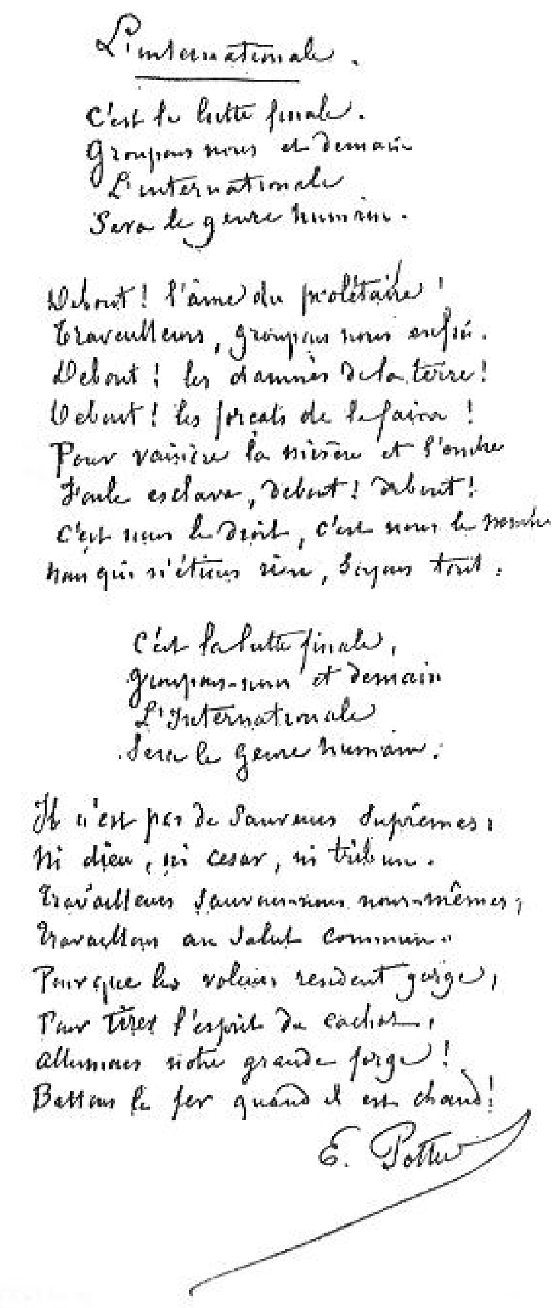 L'internationale.
C'est la lutte finale.
Groupons nous et demain
L'internationale
Sera le genre humain.
Debout ! l'âme du prolétaire !
Travailleurs, groupons nous enfin.
Debout ! les damnés de la terre !
Debout ! les forçats de la faim !
Pour vaincre la misère et l'ombre
Foule esclave, debout ! debout !
C'est nous le droit, c'est nous le nombre
Nous qui n'étions rien, soyons tout :
C'est la lutte finale,
Groupons-nous et demain
L'Internationale
Sera le genre humain.
Il n'est pas de sauveurs suprêmes,
Ni dieu, ni cesar, ni tribun.
Travailleurs sauvons-nous nous-mêmes,
Travaillons au salut commun.
Pour que les voleurs rendent gorge,
Pour tirer l'esprit du cachot,
Allumons notre grande forge !
Battons le fer quand il est chaud !
E. Pottier